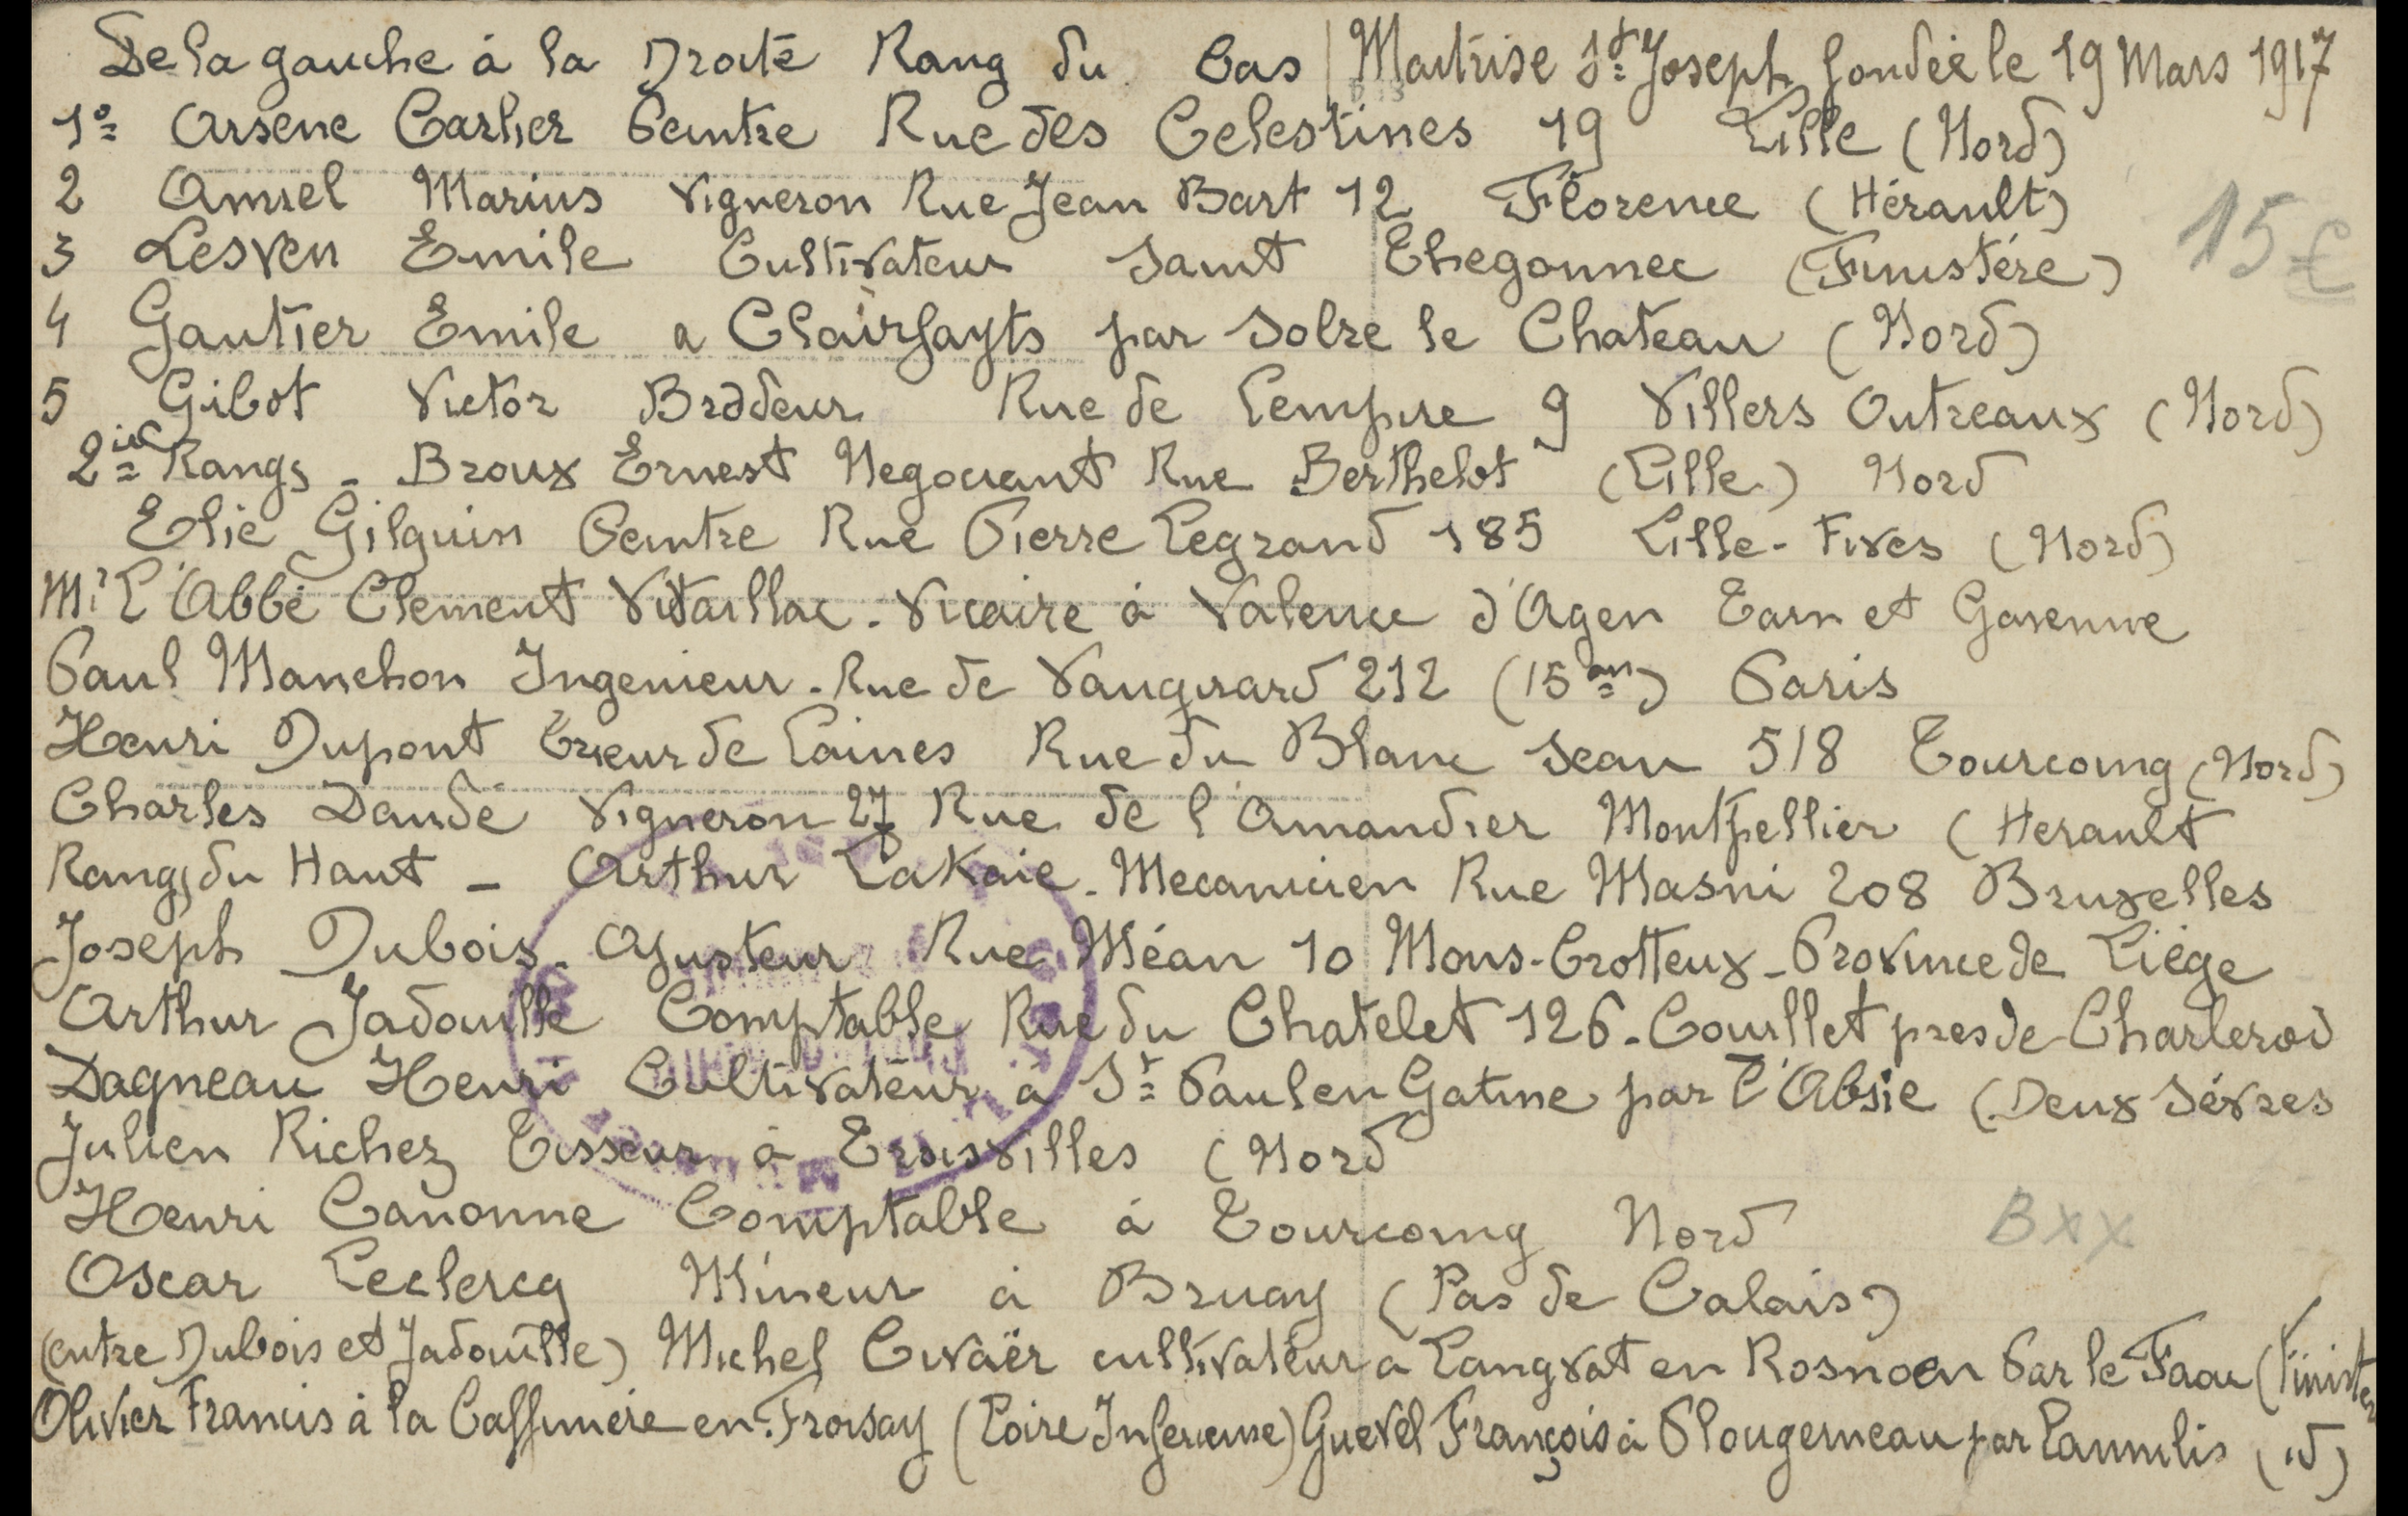 De la gauche à la Droite Rang du bas | Maitrise St Joseph fondée le 19 Mars 1917
1º Arsene Carlier Peintre Rue des Celestines 19 Lille (Nord)
2 Amiel Marius Vigneron Rue Jean Bart 12 Florence (Hérault)
3 Lesven Emile Cultivateur Saint Thegonnec (Finistére)
4 Gautier Emile a Clairfayts par Solre le Chateau (Nord)
5 Gibot Victor Brodeur Rue de Lempire 9 Villers Outreaux (Nord)
15€
2ie Rangs - Broux Ernest Negociant Rue Berthelot (Lille) Nord
Elie Gilquin Peintre Rue Pierre Legrand 185 Lille-Fives (Nord)
Mr L'Abbé Clement Vitaillac - Vicaire à Valence d'Agen Tarn et Garenne
Paul Manchon Ingenieur - Rue de Vaugirard 212 (15 arr) Paris
Henri Dupont Trieur de laines Rue du Blanc Seau 518 Tourcoing (Nord)
Charles Daudé Vigneron 27 Rue de l'Amandier Montpellier (Herault
Rangs du Haut - Arthur LaKaie - Mecanicien Rue Masni 208 Bruxelles
Joseph Dubois - Ajusteur Rue Méan 10 Mons-Crotteux - Province de Liége
Arthur Jadouille Comptable Rue du Chatelet 126 - Couillet pres de Charleroi
Dagneau Henri Cultivateur à St Paul en Gatine par L'Absie (Deux Sévres
Julien Richez Tisseur à Troisvilles (Nord
Henri Canonne Comptable à Tourcoing Nord
BXX
Oscar Leclercq Mineur à Bruay (Pas de Calais)
(entre Dubois et Jadouille) Michel Civaër cultivateur a Langvat en Rosnoen Par le Faou (Finister
Olivier Francis à la Caffiniére en Froisay (Loire Inferieure) Guevel François à Plougerneau par Lannilis (id)